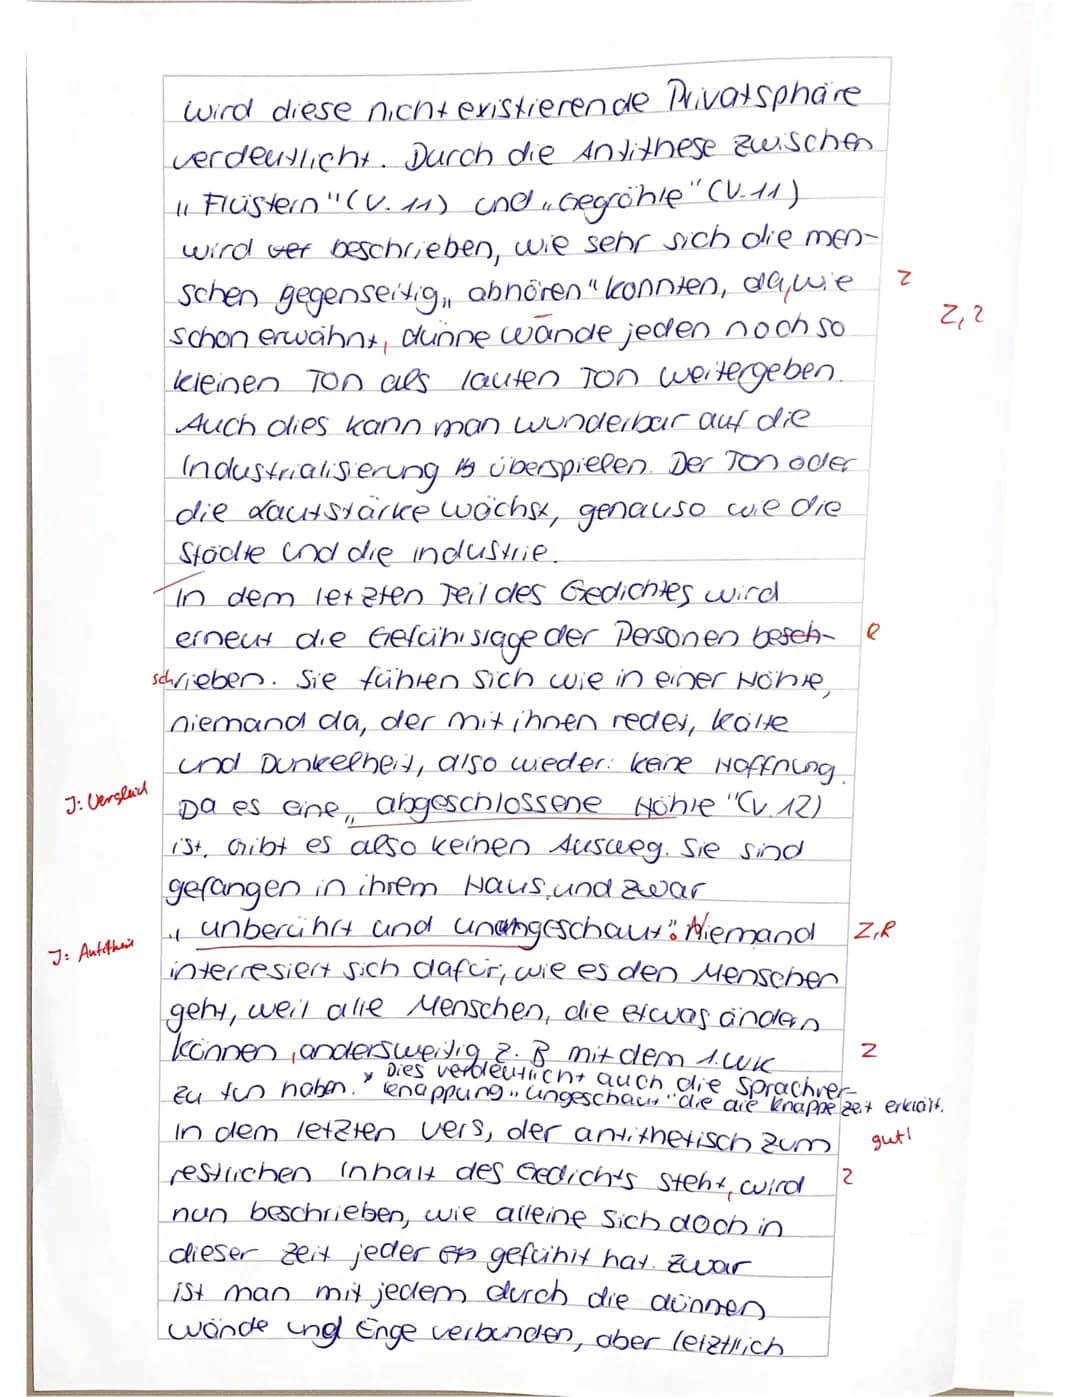 wird diese nicht existierende Privatsphäre
verdeutlicht. Durch die Antithese zwischen
„Flüstern" (V. 11) und „Gegröhle" (V. 11)
wird ver beschrieben, wie sehr sich die men-
schen gegenseitig „abhören" konnten, da, wie Z
Z, Z
schon erwähnt, dünne Wände jeden noch so
kleinen Ton als lauten Ton weitergeben.
Auch dies kann man wunderbar auf die
Industrialisierung überspielen. Der Ton oder
die Lautstärke wächst, genauso wie die
Städte und die Industrie.
In dem letzten Teil des Gedichtes wird
erneut die Gefühlslage der Personen besch- R
schrieben. Sie fühlen sich wie in einer Höhle,
niemand da, der mit ihnen redet, kälte
und Dunkelheit, also wieder: keine Hoffnung.
J: Vergleich
Da es eine „abgeschlossene Höhle" (V. 12)
ist, Gibt es also keinen Ausweg. Sie sind
gefangen in ihrem Haus, und zwar
„unberührt und unangeschaut". Niemand Z, R
J: Antithese
interresiert sich dafür, wie es den Menschen
geht, weil alle Menschen, die etwas ändern
können, andersweitig z. B mit dem 1. WK Z
zu tun haben. * Dies verdeutlicht auch die Sprachver-
knappung „ungeschaut" die die knappe Zeit erklärt.
In dem letzten Vers, der antithetisch zum gut!
restlichen Inhalt des Gedichts steht, wird Z
nun beschrieben, wie alleine sich doch in
dieser Zeit jeder gefühlt hat. Zwar
ist man mit jedem durch die dünnen
Wände und Enge verbunden, aber letztlich